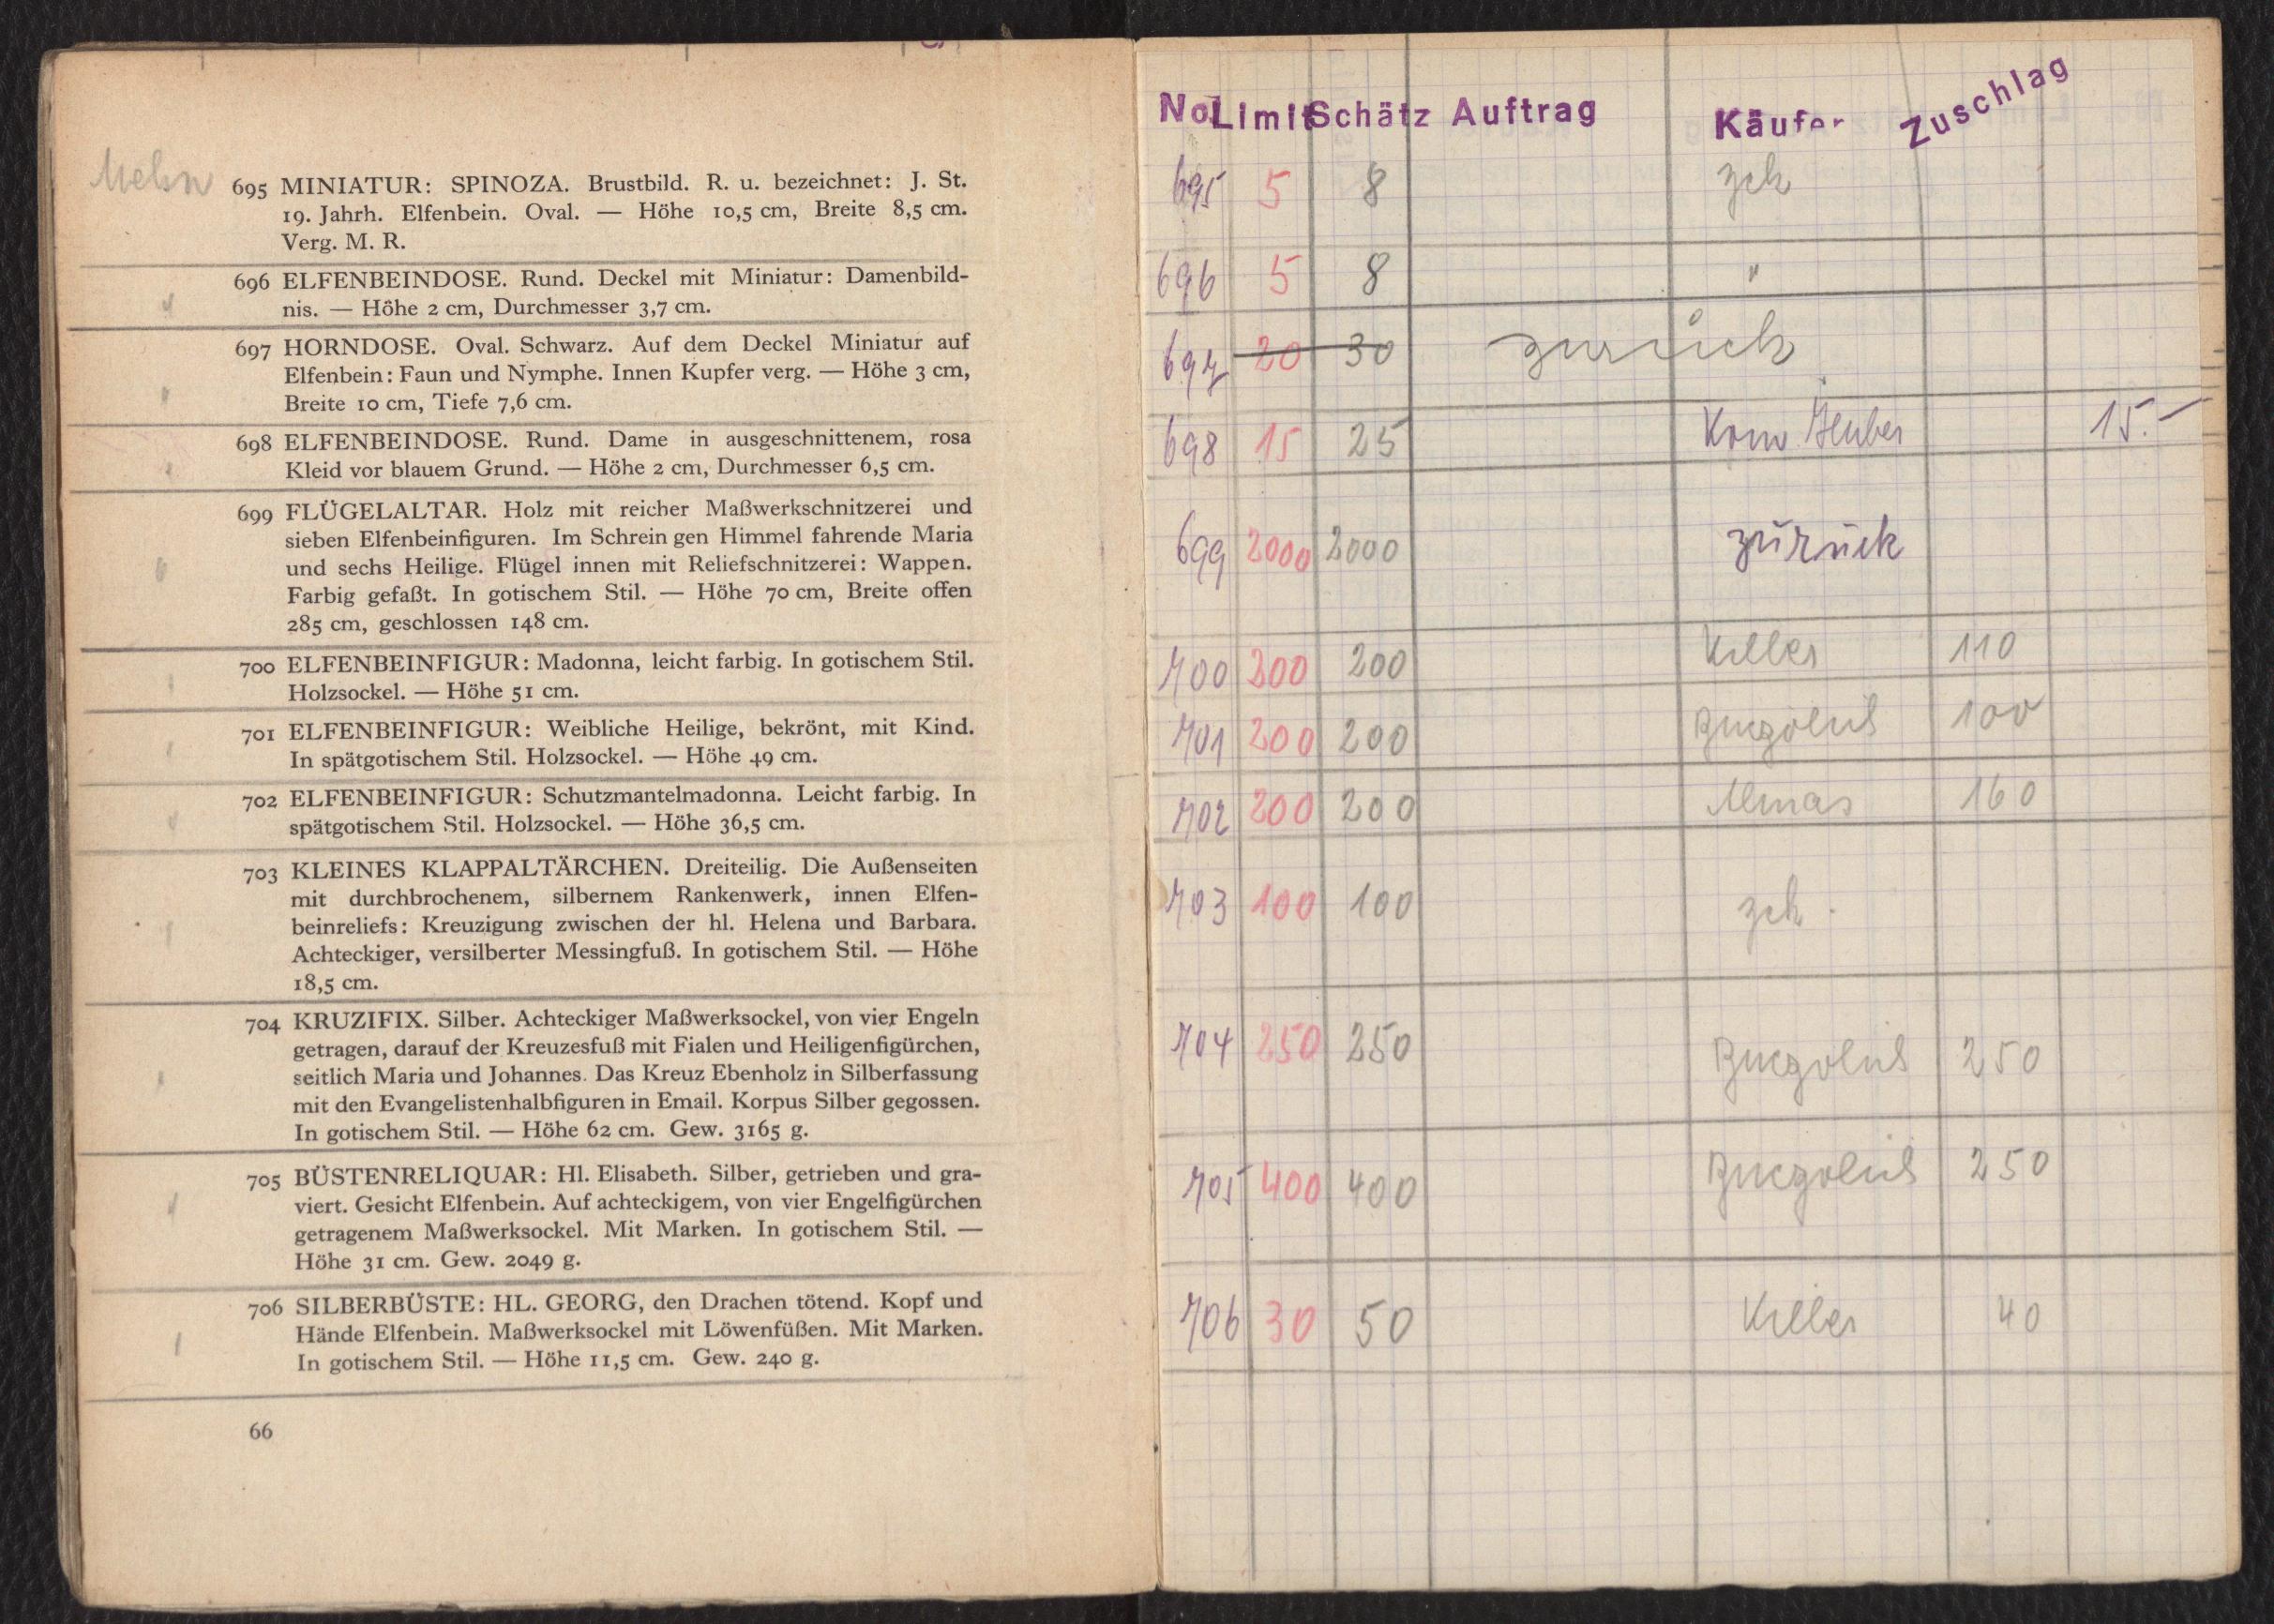 Mehn 695 MINIATUR: SPINOZA. Brustbild. R. u. bezeichnet: J. St.
19. Jahrh. Elfenbein. Oval. — Höhe 10,5 cm, Breite 8,5 cm.
Verg. M. R.
696 ELFENBEINDOSE. Rund. Deckel mit Miniatur: Damenbild-
nis. — Höhe 2 cm, Durchmesser 3,7 cm.
697 HORNDOSE. Oval. Schwarz. Auf dem Deckel Miniatur auf
Elfenbein: Faun und Nymphe. Innen Kupfer verg. — Höhe 3 cm,
Breite 10 cm, Tiefe 7,6 cm.
698 ELFENBEINDOSE. Rund. Dame in ausgeschnittenem, rosa
Kleid vor blauem Grund. — Höhe 2 cm, Durchmesser 6,5 cm.
699 FLÜGELALTAR. Holz mit reicher Maßwerkschnitzerei und
sieben Elfenbeinfiguren. Im Schrein gen Himmel fahrende Maria
und sechs Heilige. Flügel innen mit Reliefschnitzerei: Wappen.
Farbig gefaßt. In gotischem Stil. — Höhe 70 cm, Breite offen
285 cm, geschlossen 148 cm.
700 ELFENBEINFIGUR: Madonna, leicht farbig. In gotischem Stil.
Holzsockel. — Höhe 51 cm.
701 ELFENBEINFIGUR: Weibliche Heilige, bekrönt, mit Kind.
In spätgotischem Stil. Holzsockel. — Höhe 49 cm.
702 ELFENBEINFIGUR: Schutzmantelmadonna. Leicht farbig. In
spätgotischem Stil. Holzsockel. — Höhe 36,5 cm.
703 KLEINES KLAPPALTÄRCHEN. Dreiteilig. Die Außenseiten
mit durchbrochenem, silbernem Rankenwerk, innen Elfen-
beinreliefs: Kreuzigung zwischen der hl. Helena und Barbara.
Achteckiger, versilberter Messingfuß. In gotischem Stil. — Höhe
18,5 cm.
704 KRUZIFIX. Silber. Achteckiger Maßwerksockel, von vier Engeln
getragen, darauf der Kreuzesfuß mit Fialen und Heiligenfigürchen,
seitlich Maria und Johannes. Das Kreuz Ebenholz in Silberfassung
mit den Evangelistenhalbfiguren in Email. Korpus Silber gegossen.
In gotischem Stil. — Höhe 62 cm. Gew. 3165 g.
705 BÜSTENRELIQUAR: Hl. Elisabeth. Silber, getrieben und gra-
viert. Gesicht Elfenbein. Auf achteckigem, von vier Engelfigürchen
getragenem Maßwerksockel. Mit Marken. In gotischem Stil. —
Höhe 31 cm. Gew. 2049 g.
706 SILBERBÜSTE: HL. GEORG, den Drachen tötend. Kopf und
Hände Elfenbein. Maßwerksockel mit Löwenfüßen. Mit Marken.
In gotischem Stil. — Höhe 11,5 cm. Gew. 240 g.
66
No. Limit Schätz Auftrag Käufer Zuschlag
695 5 8 zck
696 5 8 "
697 20 30 zurück
698 15 25 Huber 15.—
699 2000 2000 zurück
700 200 200 Killer 110
701 200 200 100
702 200 200 Almas 160
703 100 100 zck.
704 250 250 250
705 400 400 250
706 30 50 Killer 40